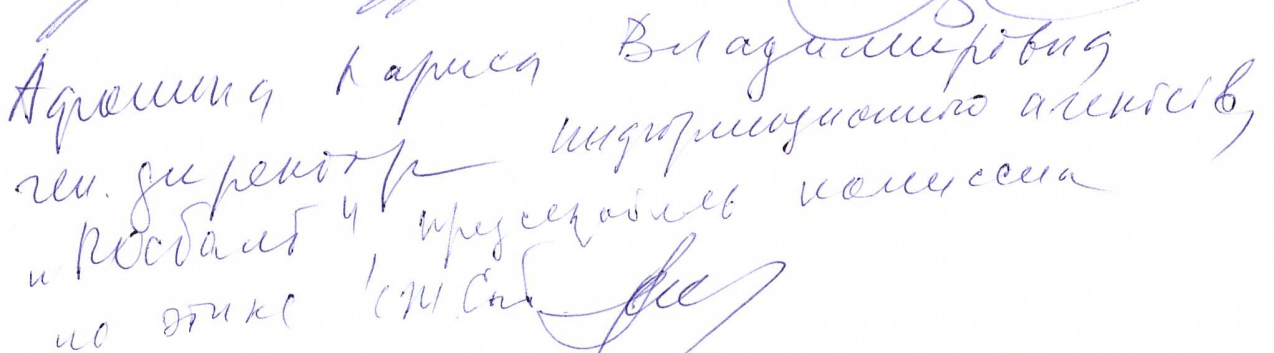 Афонина Лариса Владимировна
ген. директор информационного агентства
„Росбалт", председатель комиссии
по этике СЖ СПб